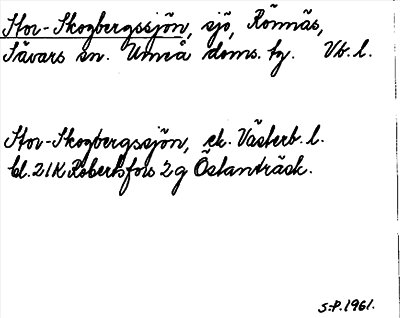 Stor-Skogbergssjön, sjö, Rönnäs,
Sävars sn. Umeå doms. tg. Vb. l.
Stor-Skogbergssjön, ek. Västerb. l.
bl. 21K Robertsfors 2g Östanträsk.
S:P. 1961.